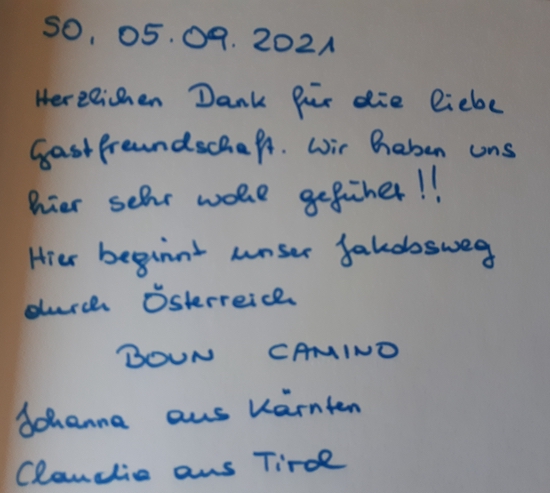 SO, 05.09.2021
Herzlichen Dank für die liebe
Gastfreundschaft. Wir haben uns
hier sehr wohl gefühlt!!
Hier beginnt unser Jakobsweg
durch Österreich
BOUN CAMINO
Johanna aus Kärnten
Claudia aus Tirol